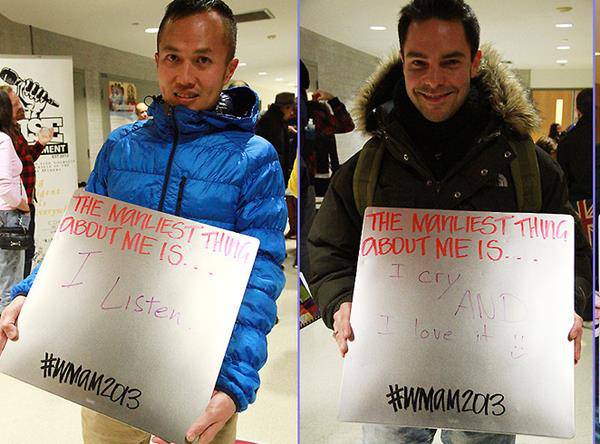 THE MANLIEST THING
ABOUT ME IS...
I
Listen.
#WMAM2013
THE MANLIEST THING
ABOUT ME IS...
I cry
AND
I love it :)
#WMAM2013